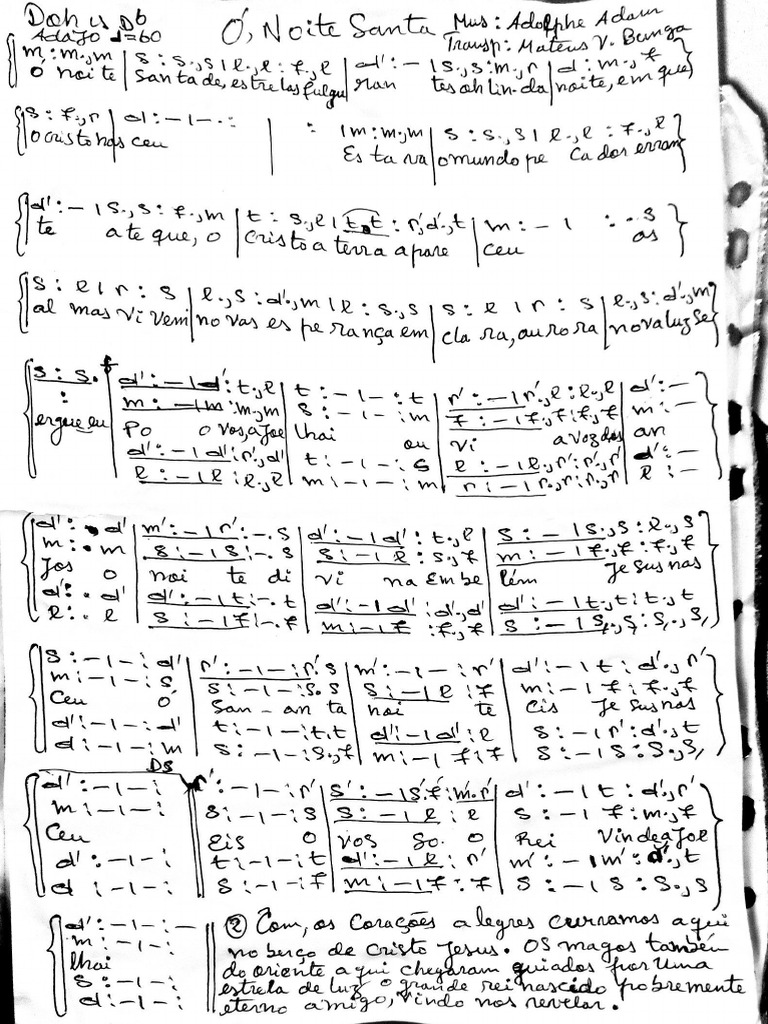 Doh is Db
Adajo d=60
Ó, Noite Santa
Mus: Adolphe Adam
Transp: Mateus V. Bunga
m : m.,m | s : s.,s | l., l : f., l | d' : - | s., s : m., r | d : m., f
O noite Santa de, estrelas fulgu ran tes oh lin-da noite, em que
s : f., r | d : - | - . :   :   | m : m., m | s : s., s | l., l : f., l
O cristo nas ceu   Es ta va o mundo pe cador erran
d' : - | s., s : f., m | t : s., l | t., t : r', d'., t | m : - | : . s
te a te que, o Cristo a terra apare ceu as
s : l | r : s | l., s : d'., m | l : s., s | s : l | r : s | l., s : d'., m
al mas vi vem novas es perança em cla ra, aurora nova luz Se
s : s. f | d' : - | d' : t., l | t : - | - : t | r' : - | r'., l : l., l | d' : -
: | m : - | m : m., m | s : - | - : m | f : - | f., f : f., f | m : -
ergue eu Po o vos, ajoe lhai ou vi a voz dos an
d' : - | d' : r', d' | t : - | - : s | l : - | l., r' : r'., r' | d' : -
l : - | l : l., l | m : - | - : m | r : - | r., r : r., r | l : -
d' : . d' | m' : - | r' : - . s | d' : - | d' : t., l | s : - | s., s : l., s
m : . m | s : - | s : - . s | s : - | l : s., f | m : - | f., f : f., f
Jos o noi te di vi na Em be lém Je sus nas
d' : . d' | d' : - | t : - . t | d' : - | d' : d'., d' | d' : - | t., t : t., t
l : . l | s : - | f : - . f | m : - | f : f., f | s : - | s,., s, : s,., s,
s : - | - : d' | r' : - | - : r'. s | m' : - | - : r' | d' : - | t : d'., r'
m : - | - : s | s : - | - : s. s | s : - | l : f | m : - | f : f., f
Ceu Ó San - an ta noi te Cis Je sus nas
d' : - | - : d' | t : - | - : t. t | d' : - | d' : l | s : - | r' : d'., t
d : - | - : m | s : - | - : s., f | m : - | f : f | s : - | s : s., s,
DS
d' : - | - : | r' : - | - : r' | s' : - | s'. f' : m'. r' | d' : - | t : d'., r'
m : - | - : | s : - | - : s | s : - | l : l | s : - | f : m., f
Ceu Eis O vos So. o Rei Vinde ajoe
d' : - | - : | t : - | - : t | d' : - | l : r' | m' : - | m' : d'., t
d : - | - : | s : - | - : f | m : - | f : f | s : - | s : s., s
d' : - | - : -
m : - | - :
lhai
s : - | - :
d : - | - :
② Com, os Corações alegres curramos aqui
no berço de Cristo Jesus. Os magos também
do oriente aqui chegaram guiados por uma
estrela de luz o grande rei nascido pobremente
eterno amigo, vindo nos revelar.